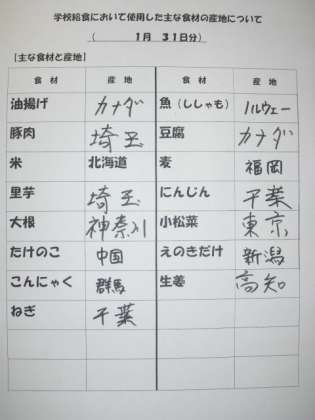 学校給食において使用した主な食材の産地について
（ 1月 31日分）
【主な食材と産地】
食材 産地 食材 産地
油揚げ カナダ 魚（ししゃも） ノルウェー
豚肉 埼玉 豆腐 カナダ
米 北海道 麦 福岡
里芋 埼玉 にんじん 千葉
大根 神奈川 小松菜 東京
たけのこ 中国 えのきだけ 新潟
こんにゃく 群馬 生姜 高知
ねぎ 千葉